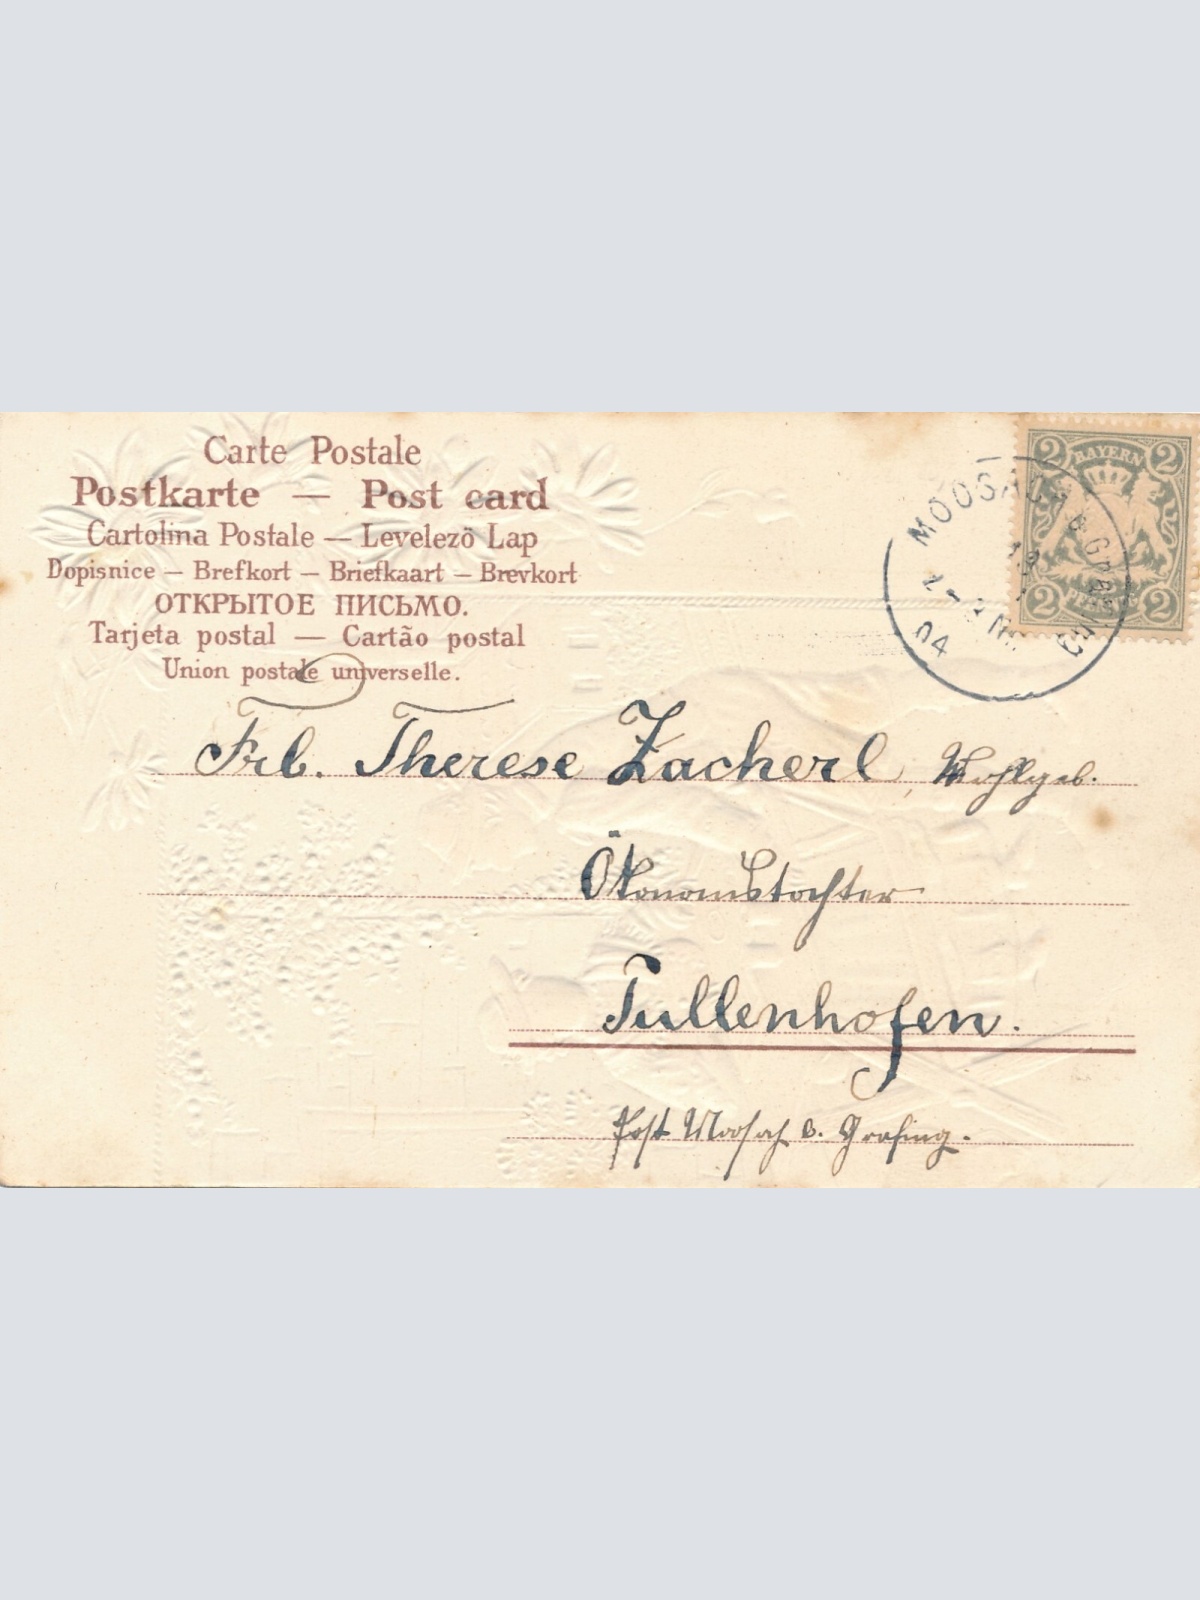 Carte Postale
Postkarte — Post card
Cartolina Postale — Levelezö Lap
Dopisnice — Brefkort — Briefkaart — Brevkort
ОТКРЫТОЕ ПИСЬМО.
Tarjeta postal — Cartão postal
Union postale universelle.
2 BAYERN 2
2 2
MOOSACH b Grafing
04
Frl. Therese Zacherl, Wohlgeb.
Ökonomstochter
Tullenhofen.
Post Moosach b. Grafing.